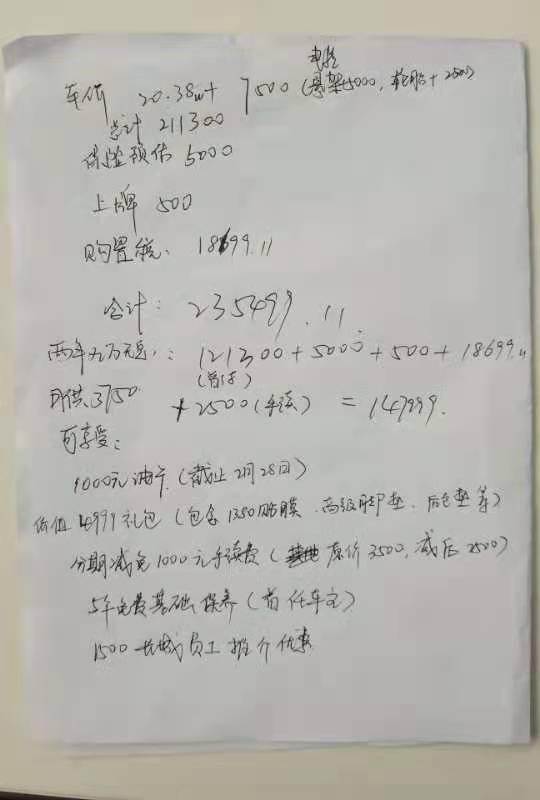 电控
车价 20.38w+ 7500 (悬架5000, 轮胎+2500)
总计 211300
保险预估 5000
上牌 500
购置税: 18699.11
合计: 235499.11
两年九万无息: 121300+5000+500+18699.11
(首付)
月供3750 +2500(手续) = 147999.
可享受:
1000元油卡 (截止2月28日)
价值4999礼包 (包含1350贴膜、高级脚垫、后仓垫等)
分期减免1000元手续费 (原价3500, 减后2500)
5年免费基础保养 (首任车主)
1500长城员工推介优惠